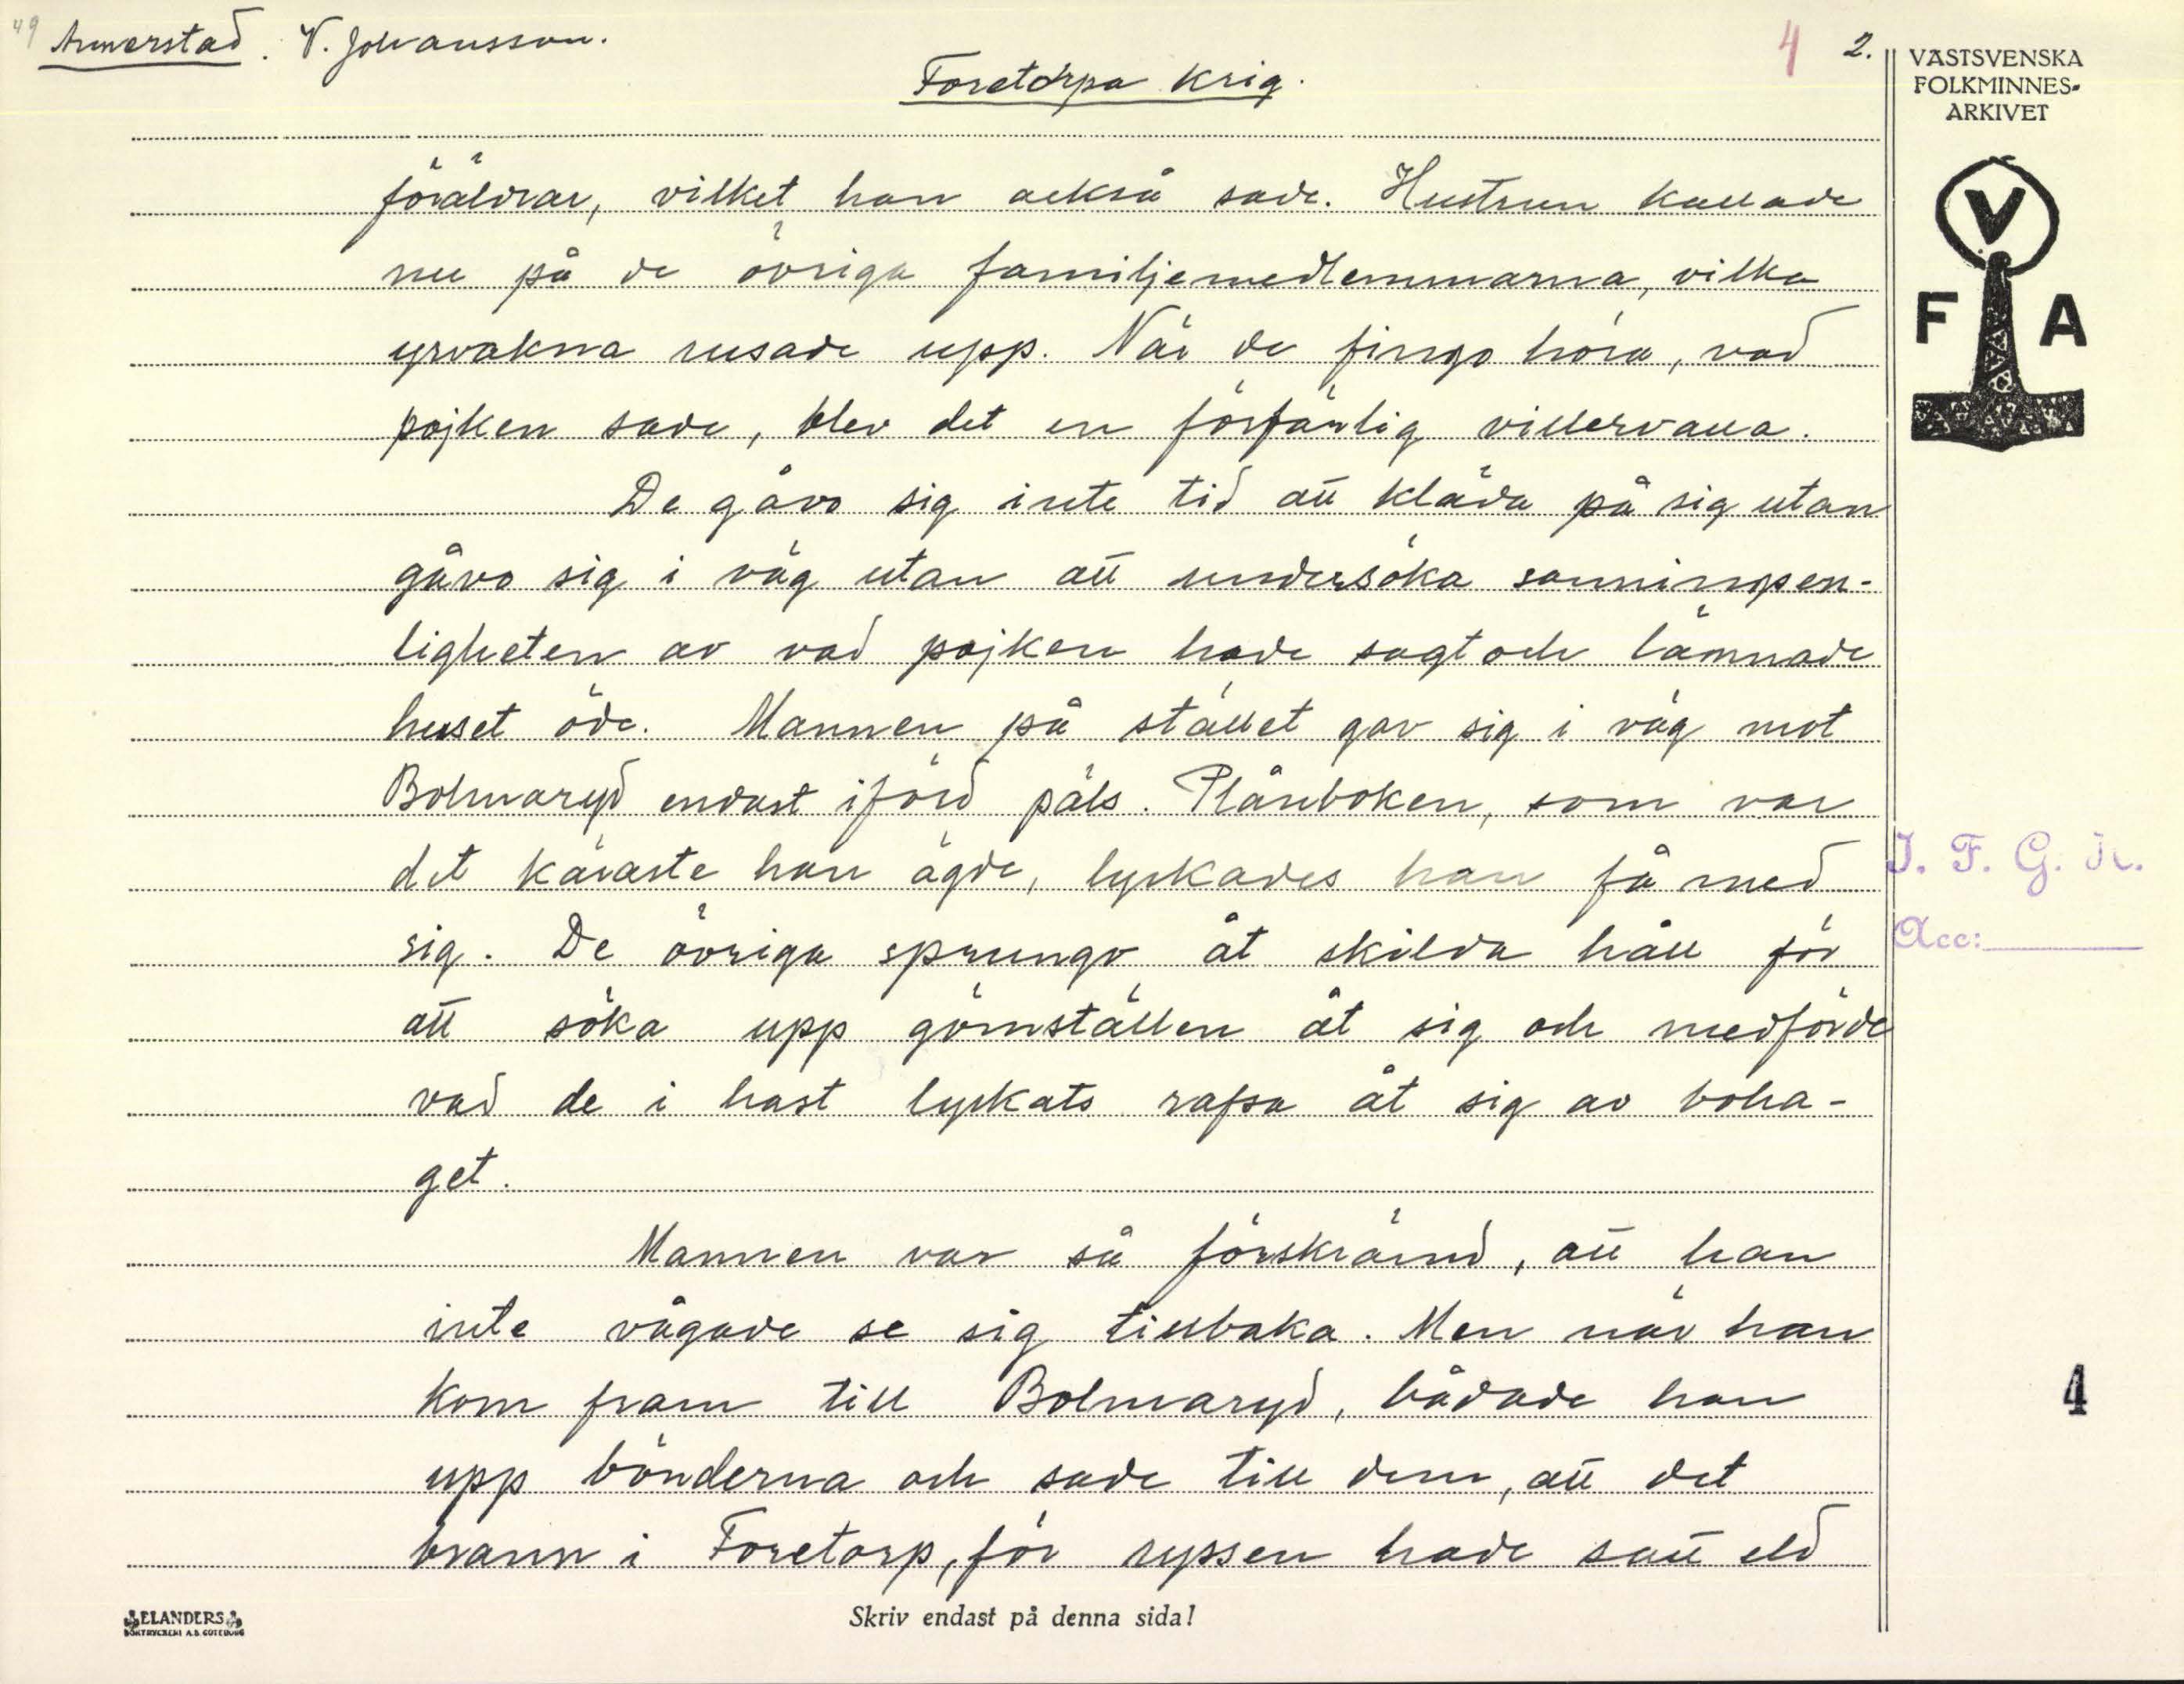 49 Annerstad. V. Johansson.
4 2.
Foretorpa krig.
VÄSTSVENSKA
FOLKMINNES-
ARKIVET
V
F A
föräldrar, vilket han också sade. Hustrun kallade
nu på de övriga familjemedlemmarna, vilka
yrvakna rusade upp. När de fingo höra, vad
pojken sade, blev det en förfärlig villervalla.
De gåvo sig inte tid att kläda på sig utan
gåvo sig i väg utan att undersöka sanningsen-
ligheten av vad pojken hade sagt och lämnade
huset öde. Mannen på stället gav sig i väg mot
Bolmaryd endast iförd päls. Plånboken, som var
det käraste han ägde, lyckades han få med
sig. De övriga sprungo åt skilda håll för
att söka upp gömställen åt sig och medförde
vad de i hast lyckats rafsa åt sig av boha-
get.
Mannen var så förskrämd, att han
inte vågade se sig tillbaka. Men när han
kom fram till Bolmaryd, bådade han
upp bönderna och sade till dem, att det
brann i Foretorp, för ryssen hade satt eld
I. F. G. H.
Acc:
4
ELANDERS
BOKTRYCKERI A.B. GÖTEBORG
Skriv endast på denna sida!